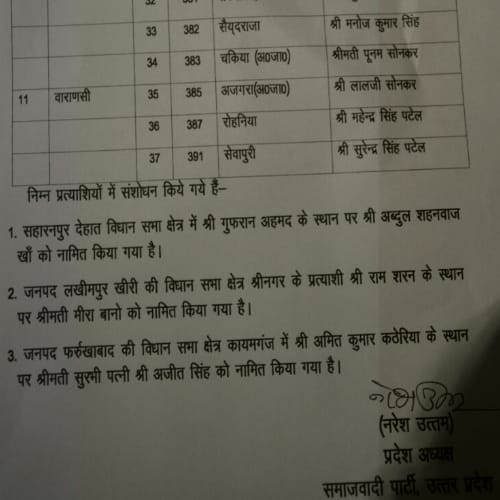 33 382 सैयदराजा श्री मनोज कुमार सिंह
34 383 चकिया (अ0जा0) श्रीमती पूनम सोनकर
11 वाराणसी 35 385 अजगरा(अ0जा0) श्री लालजी सोनकर
36 387 रोहनिया श्री महेन्द्र सिंह पटेल
37 391 सेवापुरी श्री सुरेन्द्र सिंह पटेल
निम्न प्रत्याशियों में संशोधन किये गये हैं–
1. सहारनपुर देहात विधान सभा क्षेत्र में श्री गुफरान अहमद के स्थान पर श्री अब्दुल शहनवाज
खाँ को नामित किया गया है।
2. जनपद लखीमपुर खीरी की विधान सभा क्षेत्र श्रीनगर के प्रत्याशी श्री राम शरन के स्थान
पर श्रीमती मीरा बानो को नामित किया गया है।
3. जनपद फर्रुखाबाद की विधान सभा क्षेत्र कायमगंज में श्री अमित कुमार कठेरिया के स्थान
पर श्रीमती सुरभी पत्नी श्री अजीत सिंह को नामित किया गया है।
(नरेश उत्तम)
प्रदेश अध्यक्ष
समाजवादी पार्टी, उत्तर प्रदेश